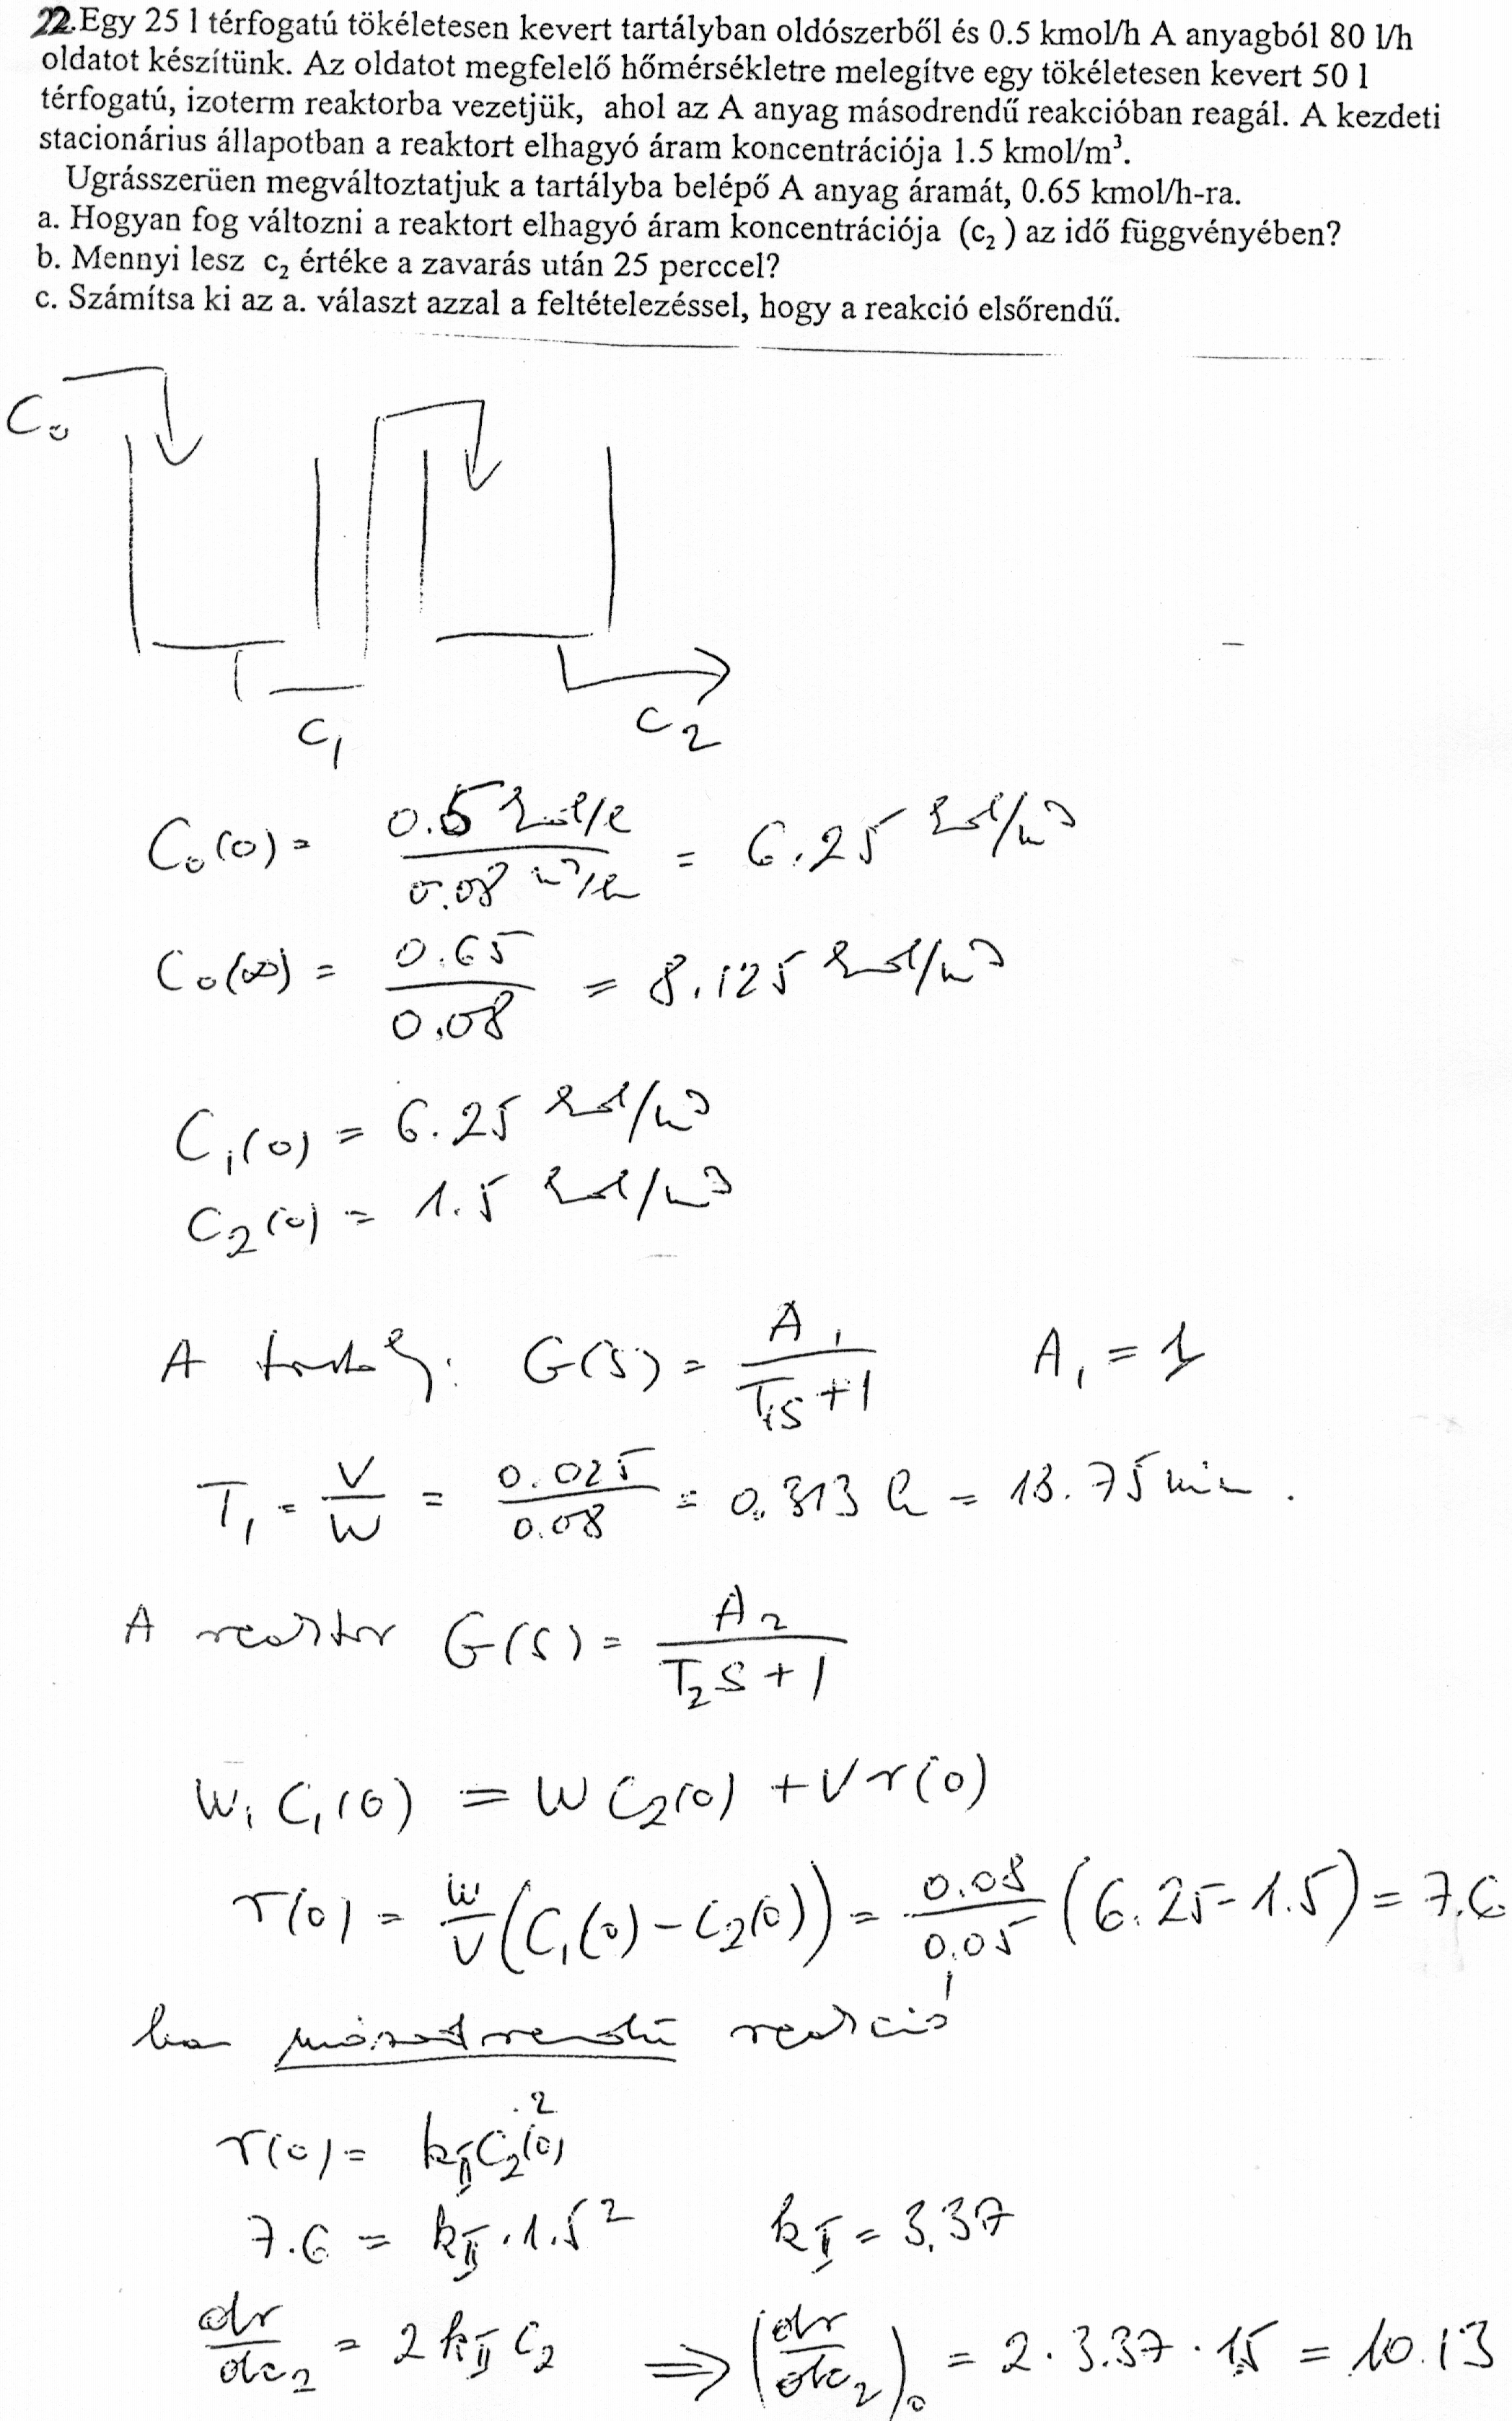 22. Egy 25 l térfogatú tökéletesen kevert tartályban oldószerből és 0.5 kmol/h A anyagból 80 l/h
oldatot készítünk. Az oldatot megfelelő hőmérsékletre melegítve egy tökéletesen kevert 50 l
térfogatú, izoterm reaktorba vezetjük, ahol az A anyag másodrendű reakcióban reagál. A kezdeti
stacionárius állapotban a reaktort elhagyó áram koncentrációja 1.5 kmol/m³.
Ugrásszerüen megváltoztatjuk a tartályba belépő A anyag áramát, 0.65 kmol/h-ra.
a. Hogyan fog változni a reaktort elhagyó áram koncentrációja (c₂ ) az idő függvényében?
b. Mennyi lesz c₂ értéke a zavarás után 25 perccel?
c. Számítsa ki az a. választ azzal a feltételezéssel, hogy a reakció elsőrendű.
C₀
C₁
C₂
C₀(0) = 0.5 kmol/h / 0.08 m³/h = 6.25 kmol/m³
C₀(∞) = 0.65 / 0.08 = 8.125 kmol/m³
C₁(0) = 6.25 kmol/m³
C₂(0) = 1.5 kmol/m³
A tartály: G(s) = A₁ / T₁s+1 A₁ = 1
T₁ = V / W = 0.025 / 0.08 = 0.313 h = 18.75 min.
A reaktor G(s) = A₂ / T₂s+1
W₁ C₁(0) = W C₂(0) + V r(0)
r(0) = W / V (C₁(0) - C₂(0)) = 0.08 / 0.05 (6.25-1.5) = 7.6
ha másodrendű reakció
r(0) = k_II C₂²(0)
7.6 = k_II · 1.5² k_II = 3.37
dr / dc₂ = 2 k_II C₂ ⇒ (dr / dc₂)₀ = 2 · 3.37 · 1.5 = 10.13